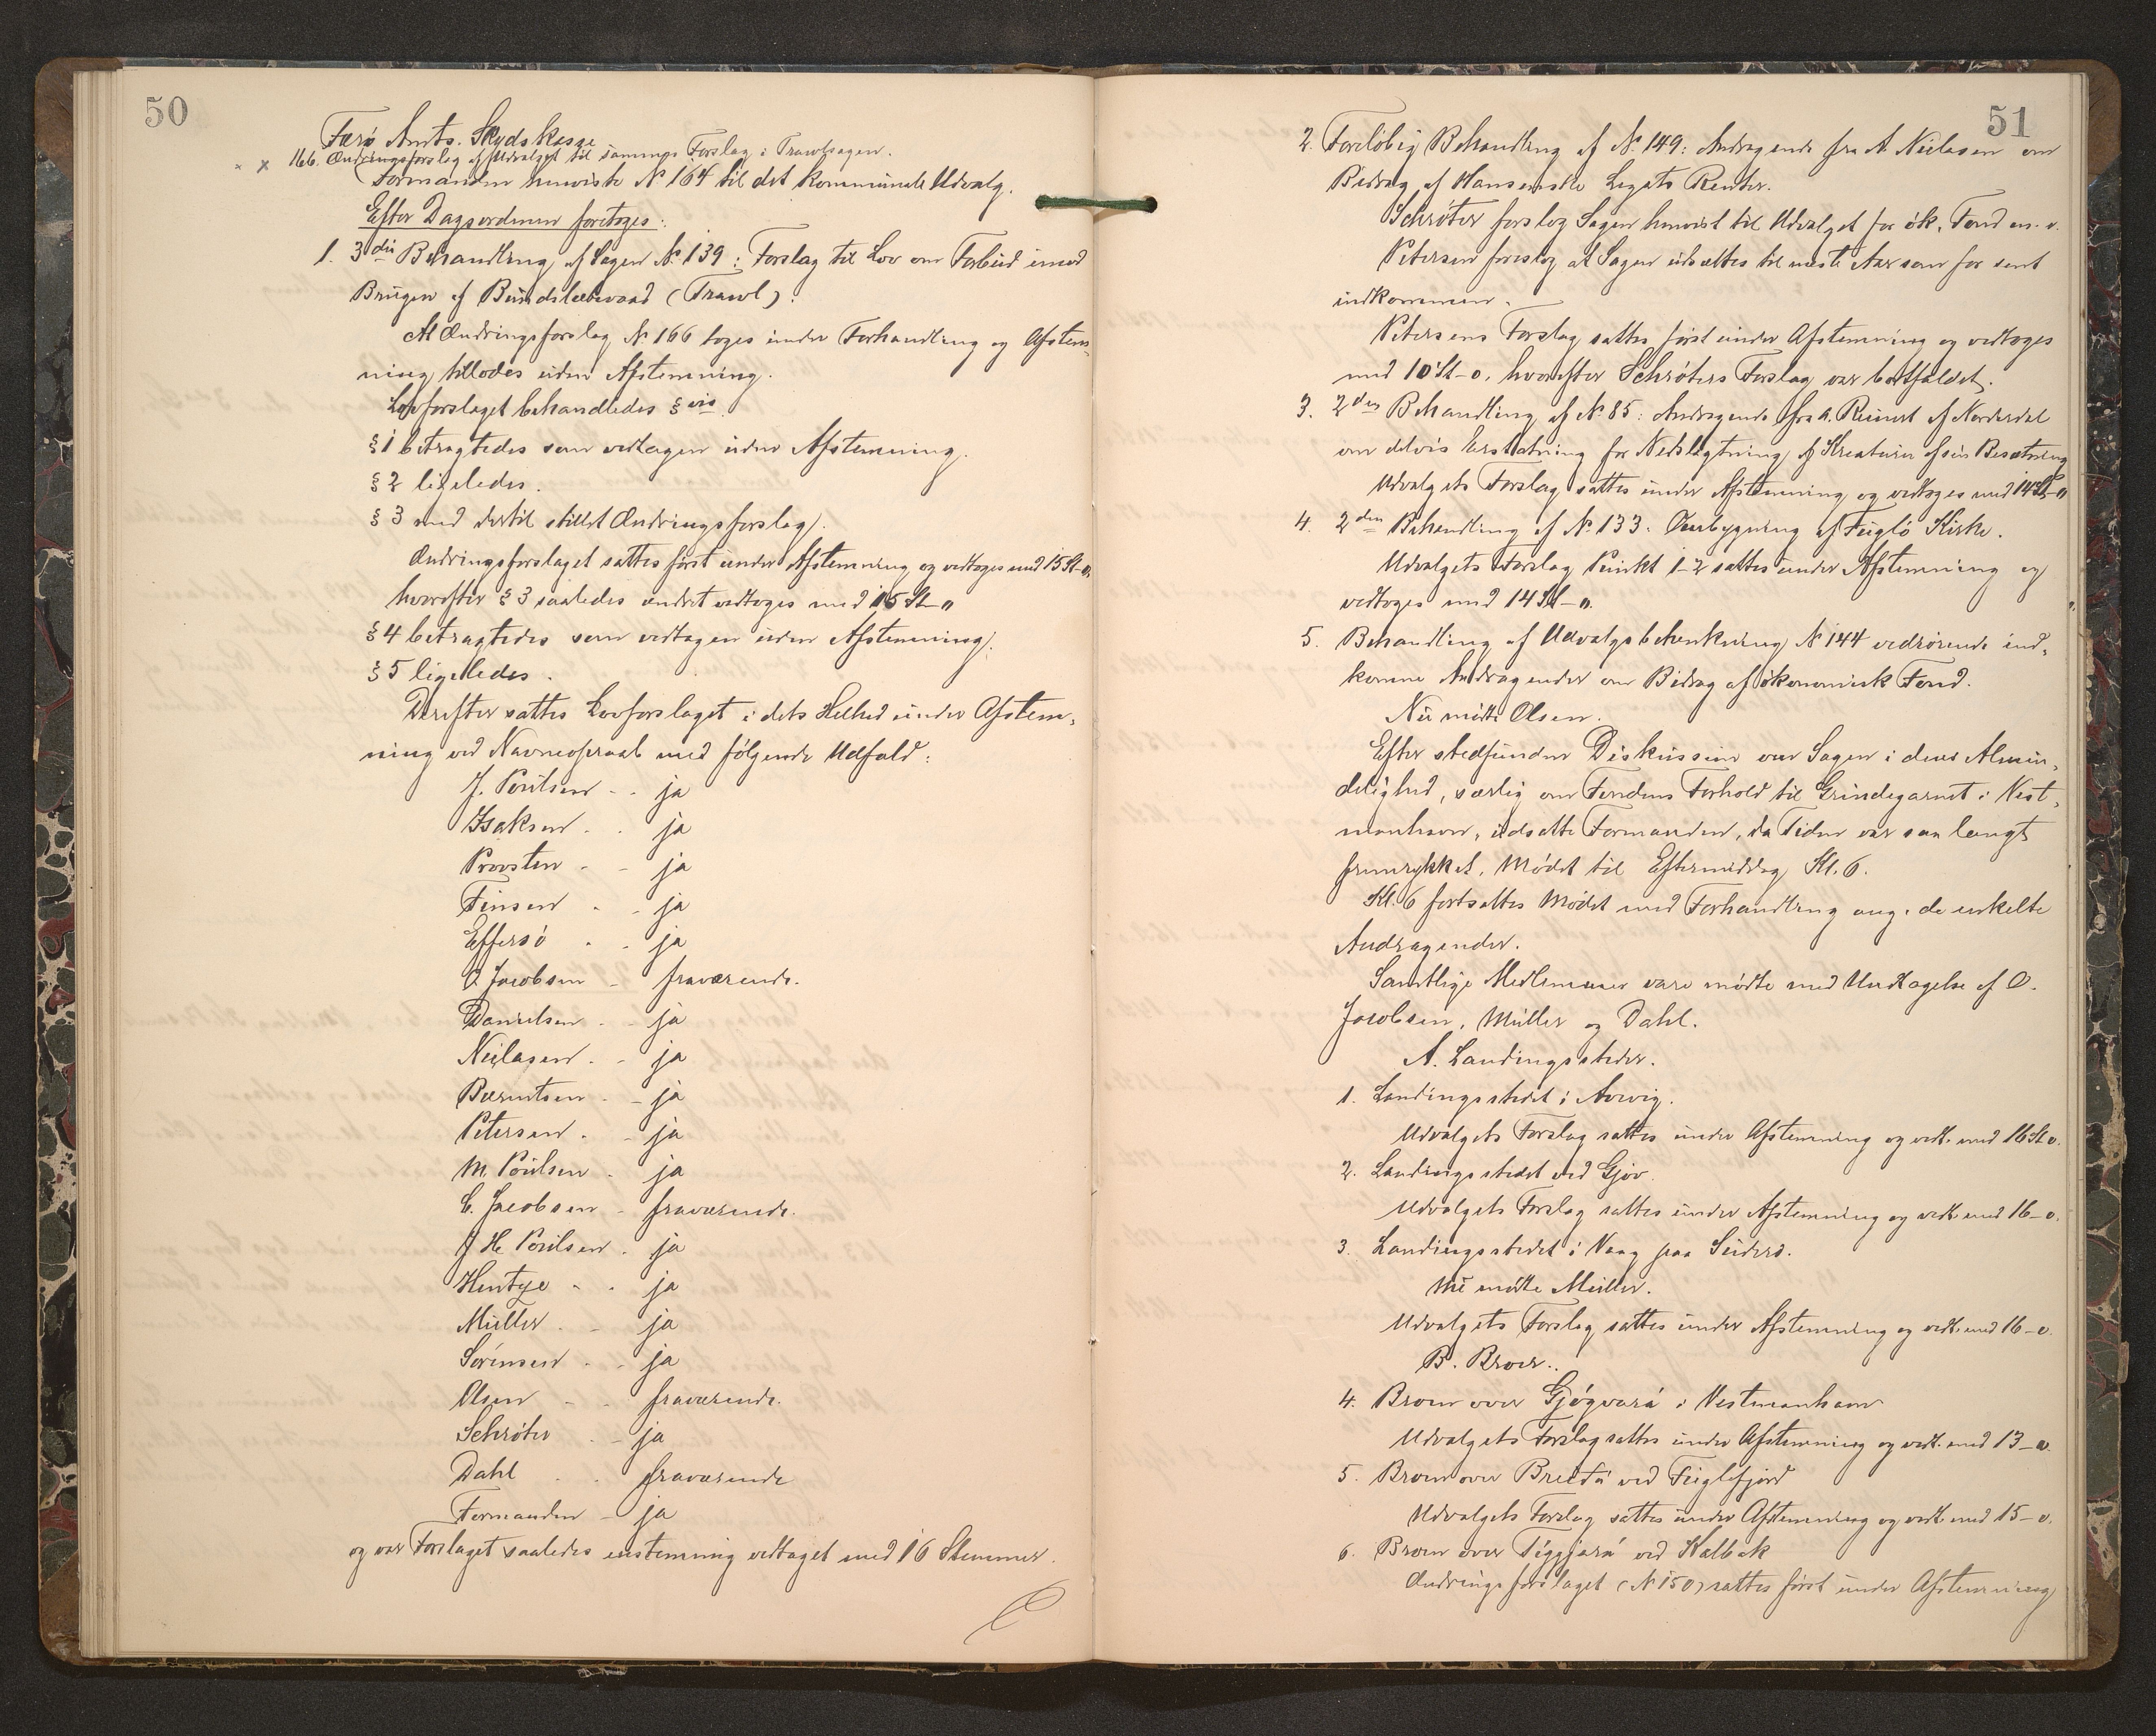 50
Færø Amts. Skydskasse
x 166. Ændringsforslag af Udvalget til samme Forslag i Trawlsagen.
Formanden henviste № 164 til det kommunale Udvalg.
Efter Dagsordenen foretoges:
1. 3die Behandling af Sagen № 139: Forslag til Lov om Forbud imod
Brugen af Bundslæbevaad (Trawl).
At Ændringsforslag № 166 toges under Forhandling og Afstem-
ning tillodes uden Afstemning.
Lovforslaget behandledes §vis
§ 1 betragtedes som vedtagen uden Afstemning.
§ 2 ligeledes.
§ 3 med dertil stillet Ændringsforslag.
Ændringsforslaget sattes først under Afstemning og vedtoges med 15 St-o,
hvorefter § 3 saaledes ændret vedtoges med 15 St-"
§ 4 betragtedes som vedtagen uden Afstemning.
§ 5 ligeledes.
Derefter sattes Lovforslaget i dets Helhed under Afstem-
ning ved Navneopraab med følgende Udfald:
J. Poulsen - - ja
Isaksen - - ja
Provsten - - ja
Finsen - - ja
Effersø - - ja
O. Jacobsen - fraværende.
Danielsen - - ja
Nielasen - - ja
Bærentsen - - ja
Petersen - - ja
M. Poulsen - ja
C. Jacobsen - fraværende.
J. H. Poulsen - ja
Hentze - - ja
Müller - - ja
Sørensen - - ja
Olsen - - fraværende.
Schrøter - - ja
Dahl - - fraværende
Formanden - ja
og var Forslaget saaledes enstemmig vedtaget med 16 Stemmer.
51
2. Foreløbig Behandling af № 149: Andragende fra A. Nielasen om
Bidrag af Hansenske Legats Renter.
Schrøter foreslog Sagen henvist til Udvalget for øk. Fond m. v.
Petersen foreslog at Sagen udsættes til næste Aar som for sent
indkommen.
Petersens Forslag sattes først under Afstemning og vedtoges
med 10 St-o, hvorefter Schrøters Forslag var bortfaldet.
3. 2den Behandling af № 85: Andragende fra A. Reinert af Norderdal
om delvis Erstatning for Nedslagtning af Kreaturer af sin Besætning
Udvalgets Forslag sattes under Afstemning og vedtoges med 14 St-"
4. 2den Behandling af № 133. Ombygning af Fuglø Kirke.
Udvalgets Forslag Punkt 1-2 sattes under Afstemning og
vedtoges med 14 St-".
5. Behandling af Udvalgsbetænkning № 144 vedrørende ind-
komne Andragender om Bidrag af økonomisk Fond.
Nu mødte Olsen.
Efter stedfunden Diskussion over Sagen i dens Almin-
delighed, særlig om Fondens Forhold til Grindegarnet i Vest-
manhavn, udsatte Formanden, da Tiden var saa langt
fremrykket, Mødet til Eftermiddag Kl. 6.
Kl. 6 fortsattes Mødet med Forhandling ang. de enkelte
Andragender.
Samtlige Medlemmer vare mødte med Undtagelse af O.
Jacobsen, Müller og Dahl.
A. Landingssteder.
1. Landingsstedet i Arvig.
Udvalgets Forslag sattes under Afstemning og vedt. med 16 St o.
2. Landingsstedet ved Gjov.
Udvalgets Forslag sattes under Afstemning og vedt. med 16-o.
3. Landingsstedet i Vaag paa Suderø.
Nu mødte Müller.
Udvalgets Forslag sattes under Afstemning og vedt. med 16-o.
B. Broer.
4. Broen over Gjógvará i Vestmanhavn
Udvalgets Forslag sattes under Afstemning og vedt. med 13-o.
5. Broen over Breidá ved Fuglefjord
Udvalgets Forslag sattes under Afstemning og vedt. med 15-o.
6. Broen over Tiggjará ved Kalbak
Ændringsforslaget (№ 150) sattes først under Afstemning